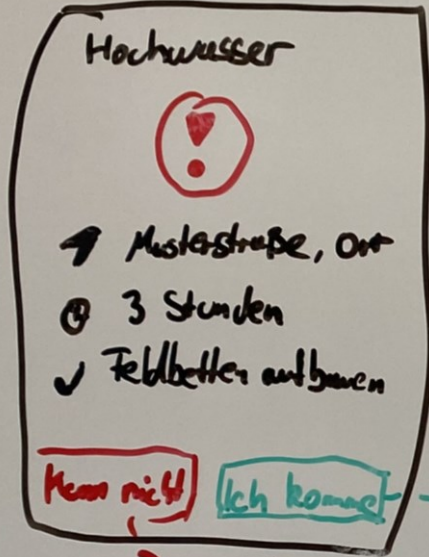 Hochwasser
!
Musterstraße, Ort
3 Stunden
Feldbetten aufbauen
Kann nicht
Ich komme